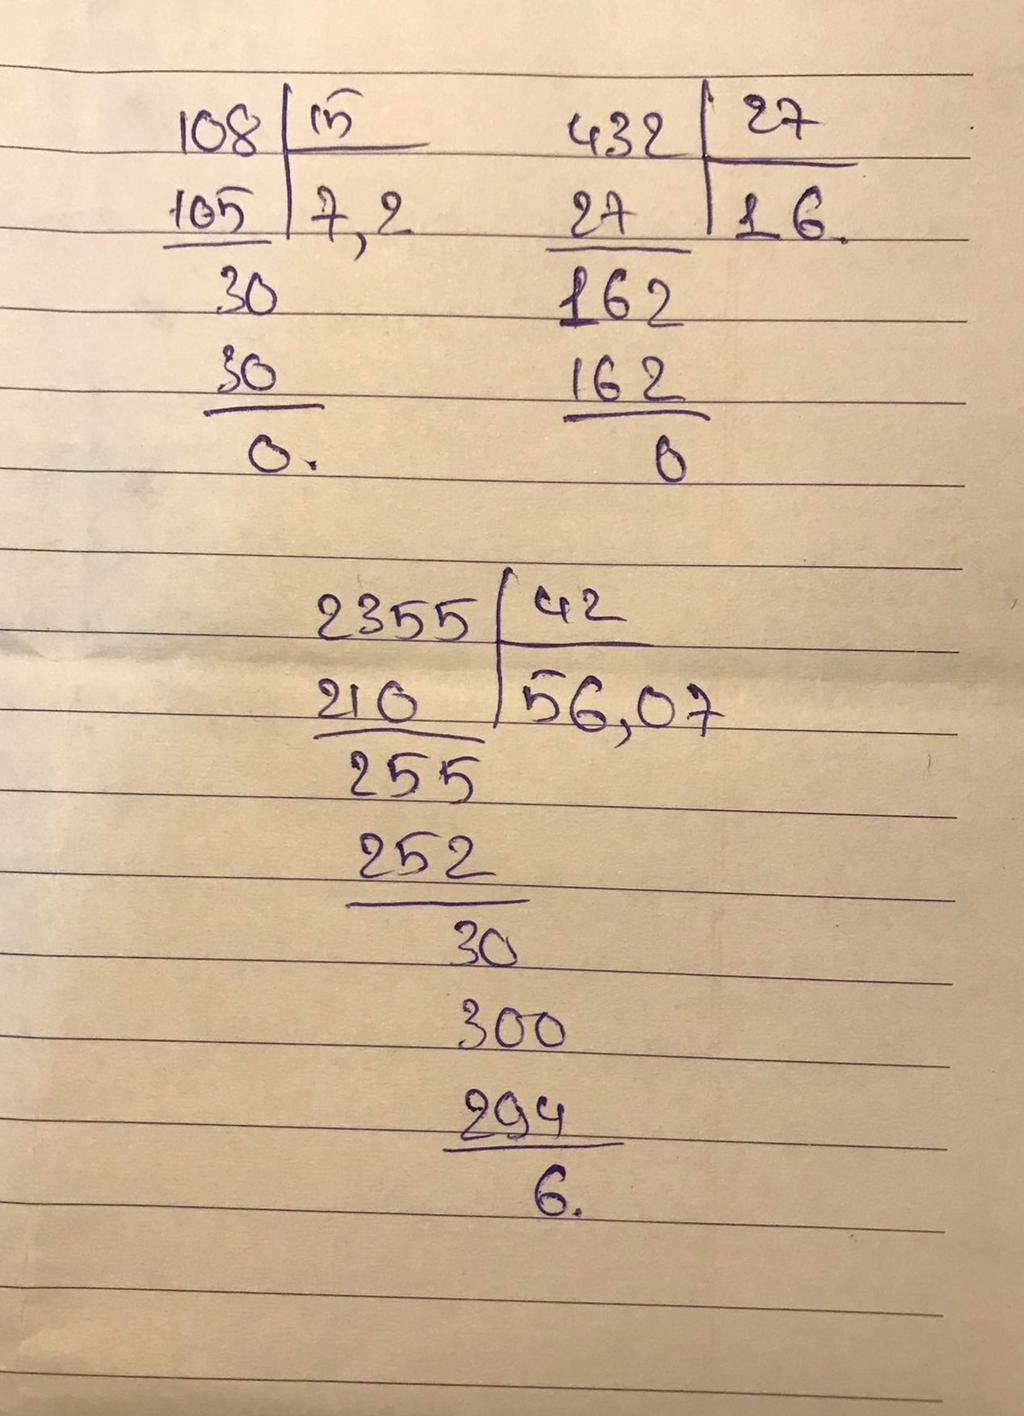 108 15
105 7,2
30
30
0.
432 27
27 16.
162
162
0
2355 42
210 56,07
255
252
30
300
294
6.